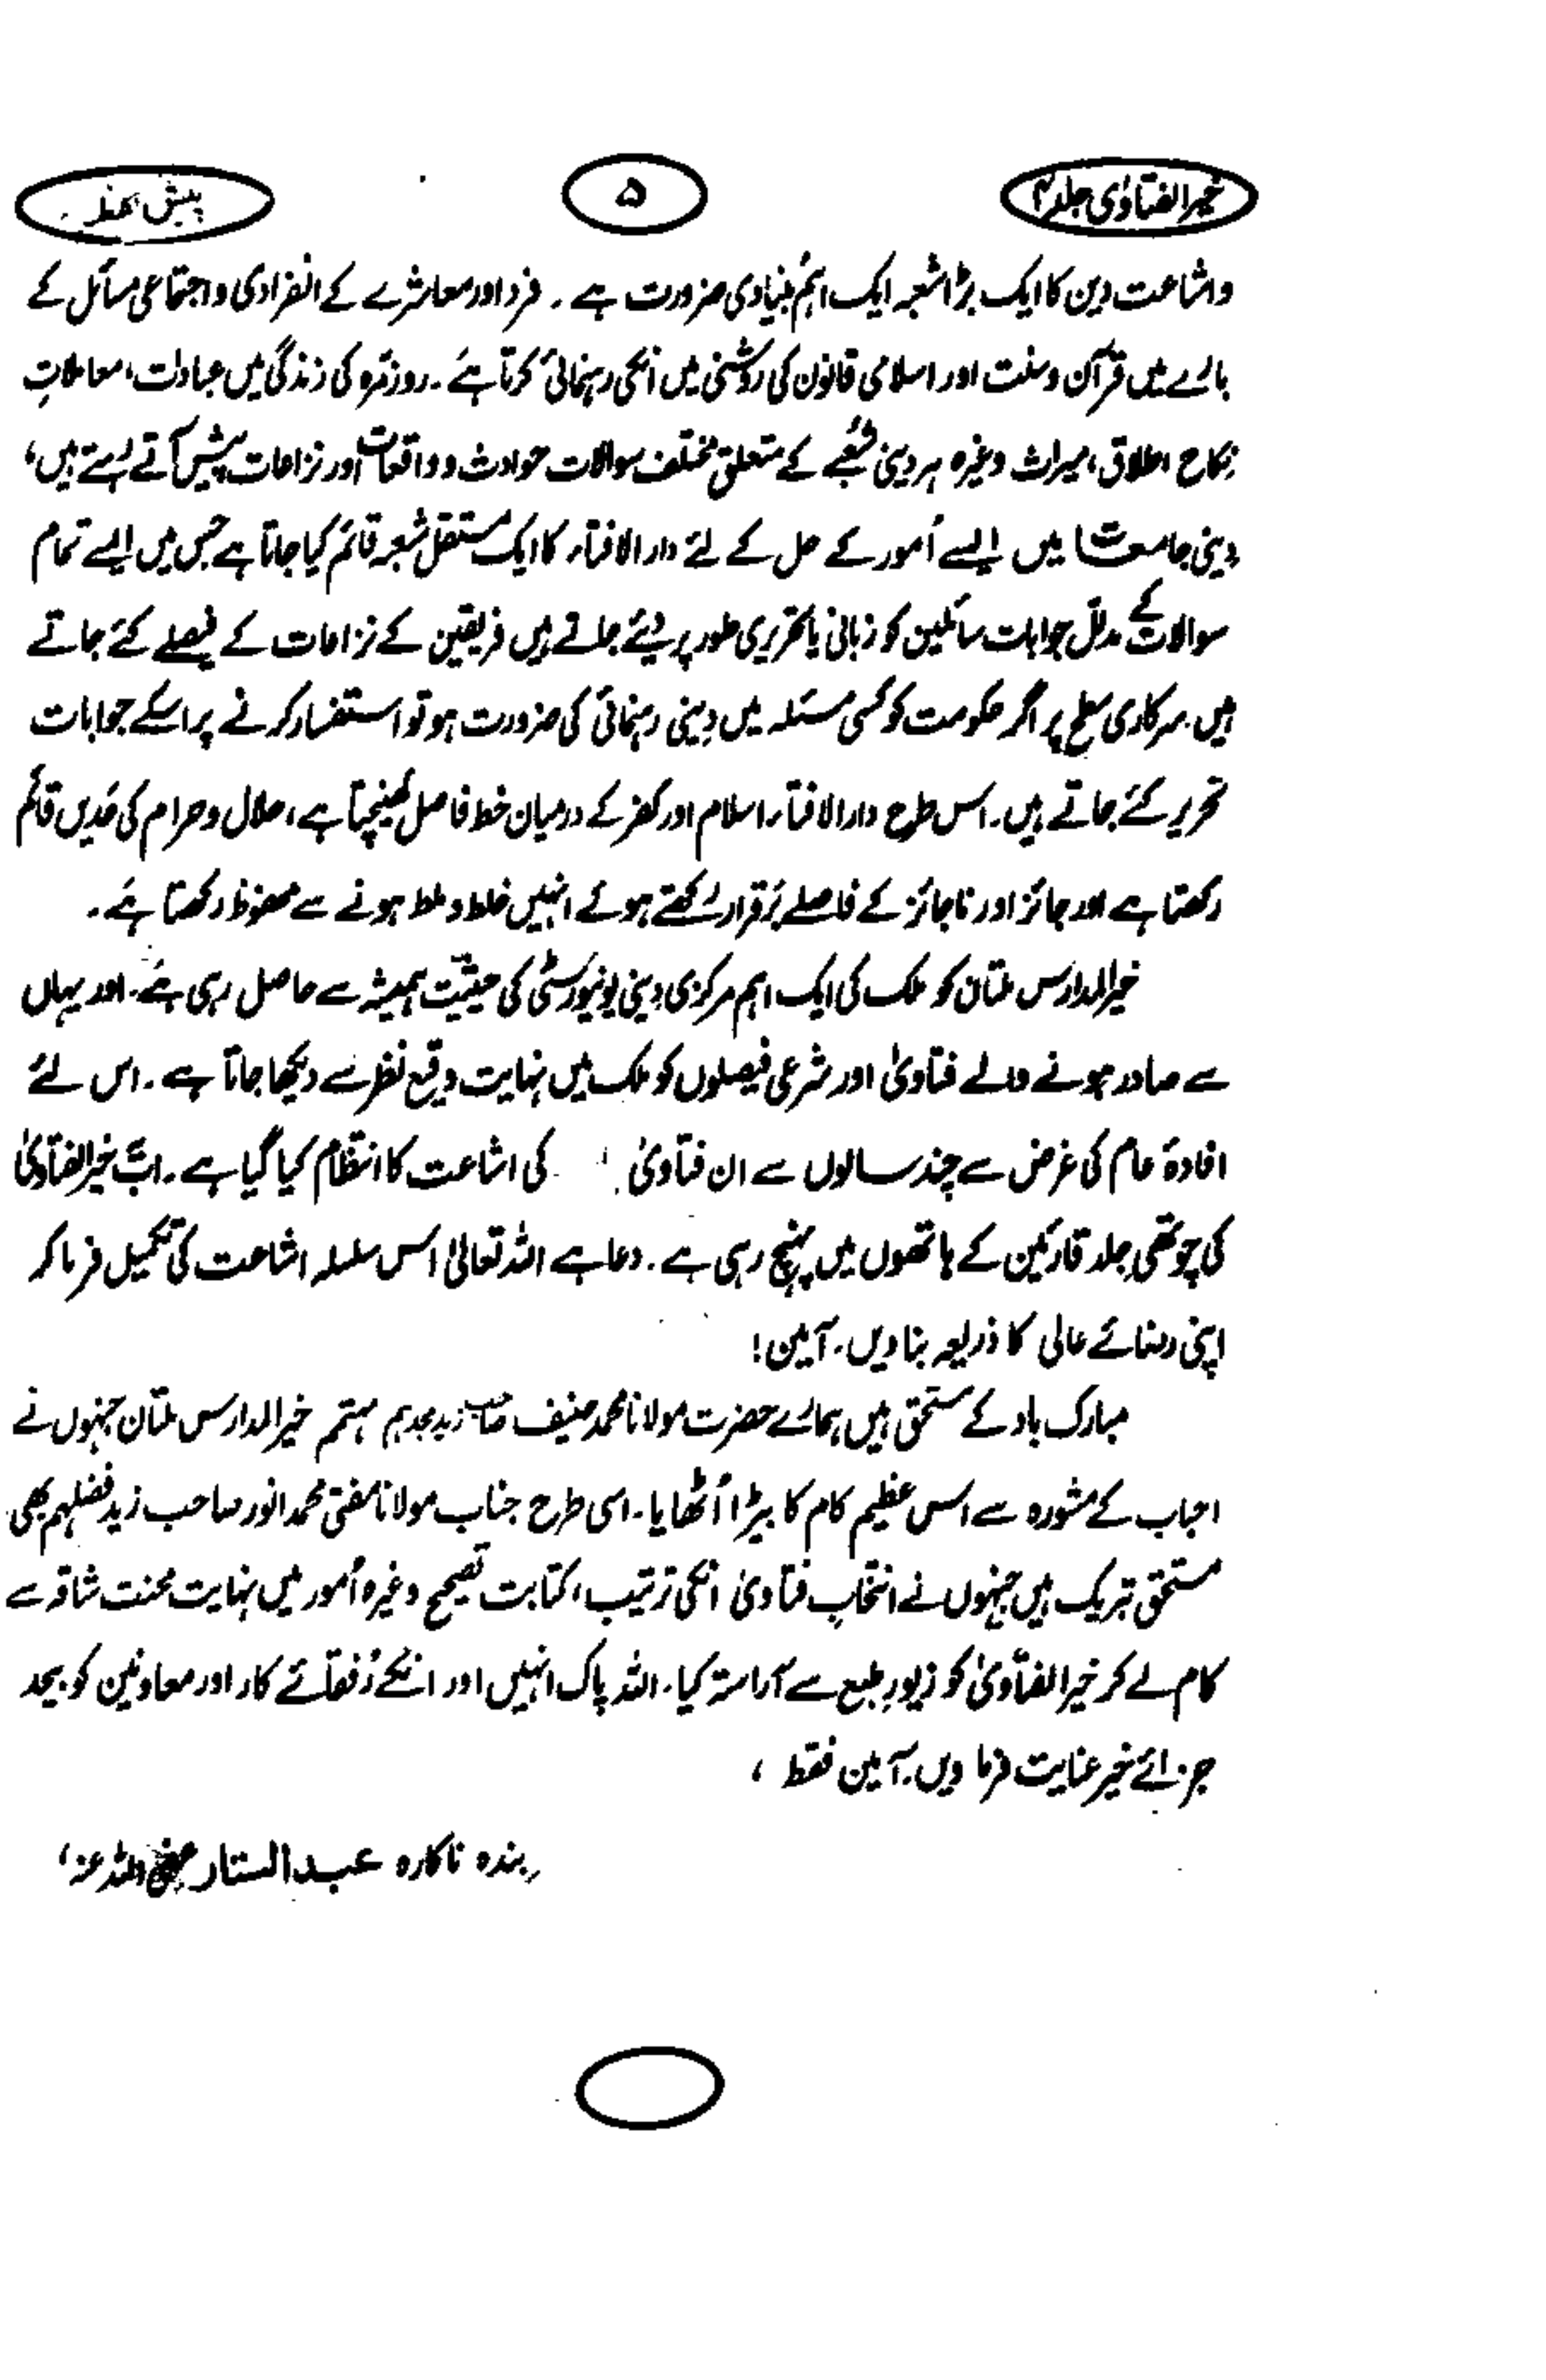 خیر الفتاویٰ جلد ۴
۵
پیش لفظ
واشاعت دین کا ایک بڑا شعبہ ایک اہم بنیادی ضرورت ہے ۔ فرد اور معاشرے کے انفرادی واجتماعی مسائل کے
بارے میں قرآن وسنت اور اسلامی قانون کی روشنی میں انکی رہنمائی کرتا ہے ۔ روزمرہ کی زندگی میں عبادات ، معاملات
نکاح ، طلاق ، میراث وغیرہ ہر دینی شعبے کے متعلق مختلف سوالات حوادث وواقعات اور نزاعات پیش آتے رہتے ہیں ،
دینی جامعات میں ایسے اُمور کے حل کے لئے دارالافتاء کا ایک مستقل شعبہ قائم کیا جاتا ہے جس میں ایسے تمام
سوالات کے مدلل جوابات سائلین کو زبانی یا تحریری طور پر دیئے جاتے ہیں فریقین کے نزاعات کے فیصلے کئے جاتے
ہیں ۔ سرکاری سطح پر اگر حکومت کو کسی مسئلہ میں دینی رہنمائی کی ضرورت ہو تو استفسار کرنے پر اسکے جوابات
تحریر کئے جاتے ہیں ۔ اس طرح دارالافتاء اسلام اور کفر کے درمیان خط فاصل کھینچتا ہے ، حلال وحرام کی حدیں قائم
رکھتا ہے اور جائز اور ناجائز کے فاصلے برقرار رکھتے ہوئے انہیں خلط وملط ہونے سے محفوظ رکھتا ہے ۔
خیرالمدارس ملتان کو ملک کی ایک اہم مرکزی دینی یونیورسٹی کی حیثیت ہمیشہ سے حاصل رہی ہے ۔ اور یہاں
سے صادر ہونے والے فتاویٰ اور شرعی فیصلوں کو ملک میں نہایت وقیع نظر سے دیکھا جاتا ہے ۔ اس لئے
افادۂ عام کی غرض سے چند سالوں سے ان فتاویٰ کی اشاعت کا انتظام کیا گیا ہے ۔ اب خیر الفتاویٰ
کی چوتھی جلد قارئین کے ہاتھوں میں پہنچ رہی ہے ۔ دعا ہے اللہ تعالیٰ اس سلسلہ اشاعت کی تکمیل فرما کر
اپنی رضائے عالی کا ذریعہ بنادیں ۔ آمین !
مبارک باد کے مستحق ہیں ہمارے حضرت مولانا محمد حنیف صاحب زید مجدہم مہتمم خیرالمدارس ملتان جنہوں نے
احباب کے مشورہ سے اس عظیم کام کا بیڑا اُٹھایا ۔ اسی طرح جناب مولانا مفتی محمد انور صاحب زید فضلہم بھی
مستحق تبریک ہیں جنہوں نے انتخاب فتاویٰ انکی ترتیب ، کتابت تصحیح وغیرہ اُمور میں نہایت محنت شاقہ سے
کام لے کر خیر الفتاویٰ کو زیور طبع سے آراستہ کیا ۔ اللہ پاک انہیں اور انکے رُفقائے کار اور معاونین کو بیحد
جزائے خیر عنایت فرما دیں ۔ آمین فقط ،
بندہ ناکارہ عبدالستار عفی اللہ عنہ ،